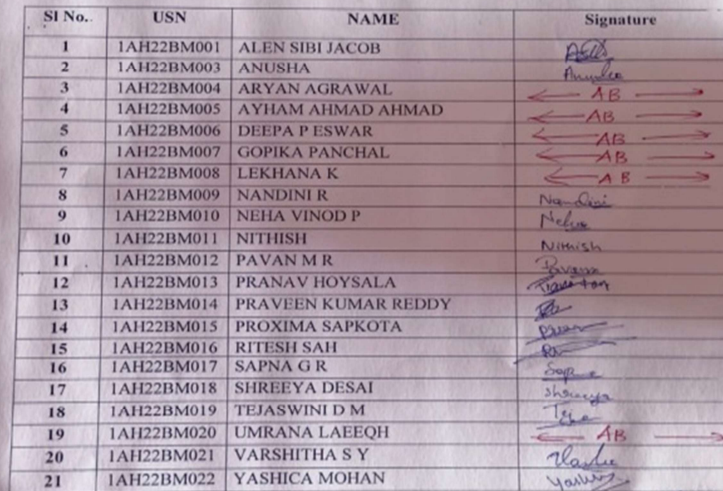 Sl No. USN NAME Signature
1 1AH22BM001 ALEN SIBI JACOB
2 1AH22BM003 ANUSHA Anusha
3 1AH22BM004 ARYAN AGRAWAL AB
4 1AH22BM005 AYHAM AHMAD AHMAD AB
5 1AH22BM006 DEEPA P ESWAR AB
6 1AH22BM007 GOPIKA PANCHAL AB
7 1AH22BM008 LEKHANA K AB
8 1AH22BM009 NANDINI R Nandini
9 1AH22BM010 NEHA VINOD P Neha
10 1AH22BM011 NITHISH Nithish
11 1AH22BM012 PAVAN M R
12 1AH22BM013 PRANAV HOYSALA
13 1AH22BM014 PRAVEEN KUMAR REDDY
14 1AH22BM015 PROXIMA SAPKOTA
15 1AH22BM016 RITESH SAH
16 1AH22BM017 SAPNA G R Sapna
17 1AH22BM018 SHREEYA DESAI Shreeya
18 1AH22BM019 TEJASWINI D M
19 1AH22BM020 UMRANA LAEEQH AB
20 1AH22BM021 VARSHITHA S Y
21 1AH22BM022 YASHICA MOHAN